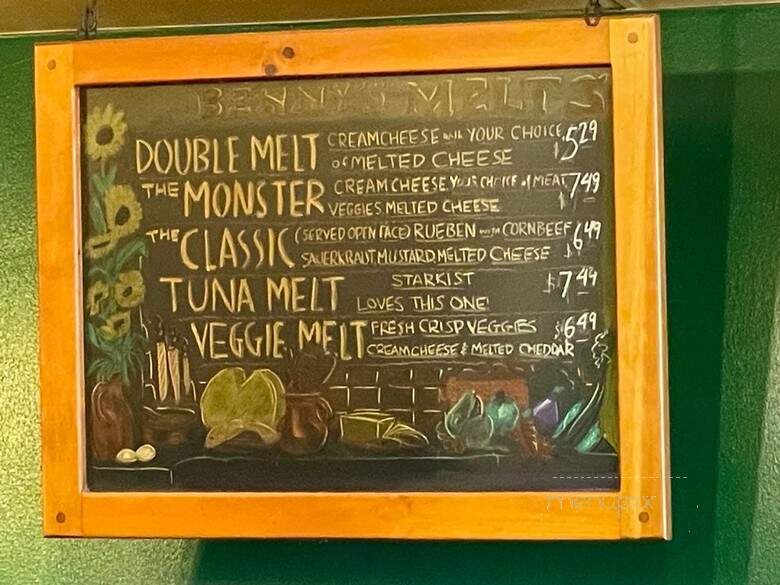 BENNY'S MELTS
DOUBLE MELT CREAMCHEESE with YOUR CHOICE of MELTED CHEESE $5.29
THE MONSTER CREAMCHEESE, YOUR CHOICE of MEAT, VEGGIES, MELTED CHEESE $7.49
THE CLASSIC (SERVED OPEN FACE) RUEBEN with CORNBEEF SAUERKRAUT, MUSTARD, MELTED CHEESE $6.49
TUNA MELT STARKIST LOVES THIS ONE! $7.49
VEGGIE MELT FRESH CRISP VEGGIES CREAMCHEESE & MELTED CHEDDAR $6.49
menupix